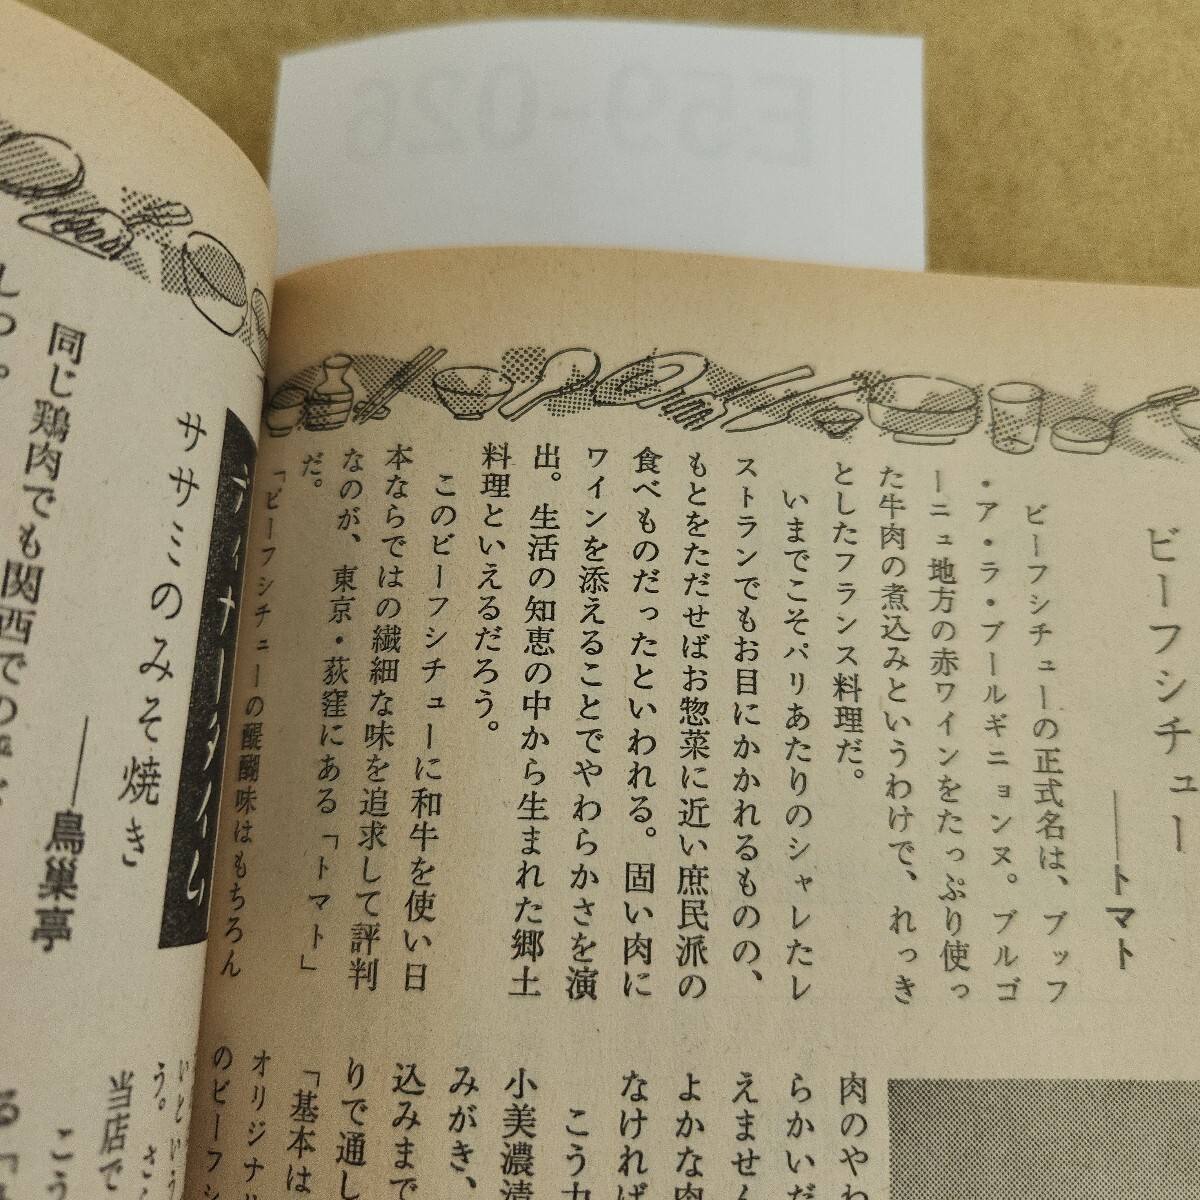 E59-026
ビーフシチュー
――トマト
ビーフシチューの正式名は、ブッフ
・ア・ラ・ブールギニョンヌ。ブルゴ
ーニュ地方の赤ワインをたっぷり使っ
た牛肉の煮込みというわけで、れっき
としたフランス料理だ。
いまでこそパリあたりのシャレたレ
ストランでもお目にかかれるものの、
もとをただせばお惣菜に近い庶民派の
食べものだったといわれる。固い肉に
ワインを添えることでやわらかさを演
出。生活の知恵の中から生まれた郷土
料理といえるだろう。
このビーフシチューに和牛を使い日
本ならではの繊細な味を追求して評判
なのが、東京・荻窪にある「トマト」
だ。
「ビーフシチューの醍醐味はもちろん
肉のやわ
らかいだ
えません
よかな肉
なければ
こう力
小美濃清
みがき、
込みまで
りで通し
「基本は
オリジナル
のビーフシ
ディナータイム
ササミのみそ焼き
――鳥巣亭
同じ鶏肉でも関西での
しつ。
いという
う。さら
当店で
こう
る「